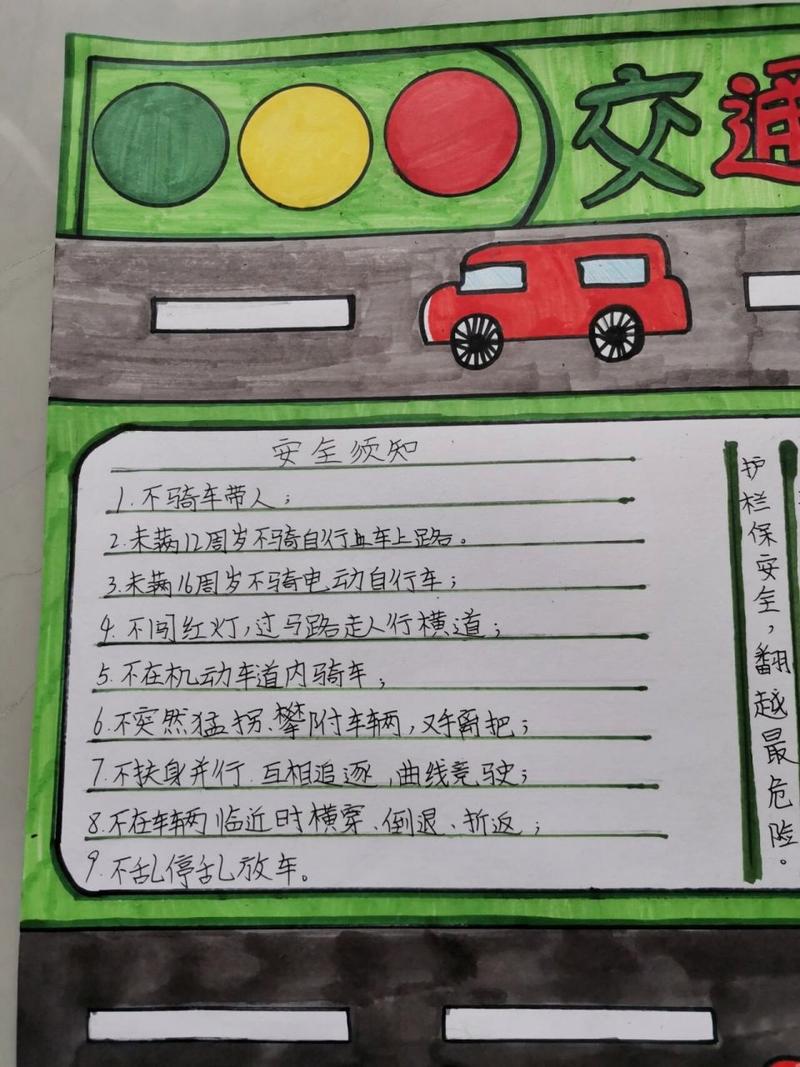 交通
安全须知
1.不骑车带人；
2.未满12周岁不骑自行车上路。
3.未满16周岁不骑电动自行车；
4.不闯红灯，过马路走人行横道；
5.不在机动车道内骑车；
6.不突然猛拐、攀附车辆，双手离把；
7.不扶身并行、互相追逐，曲线竞驶；
8.不在车辆临近时横穿、倒退、折返；
9.不乱停乱放车。
护栏保安全，翻越最危险。